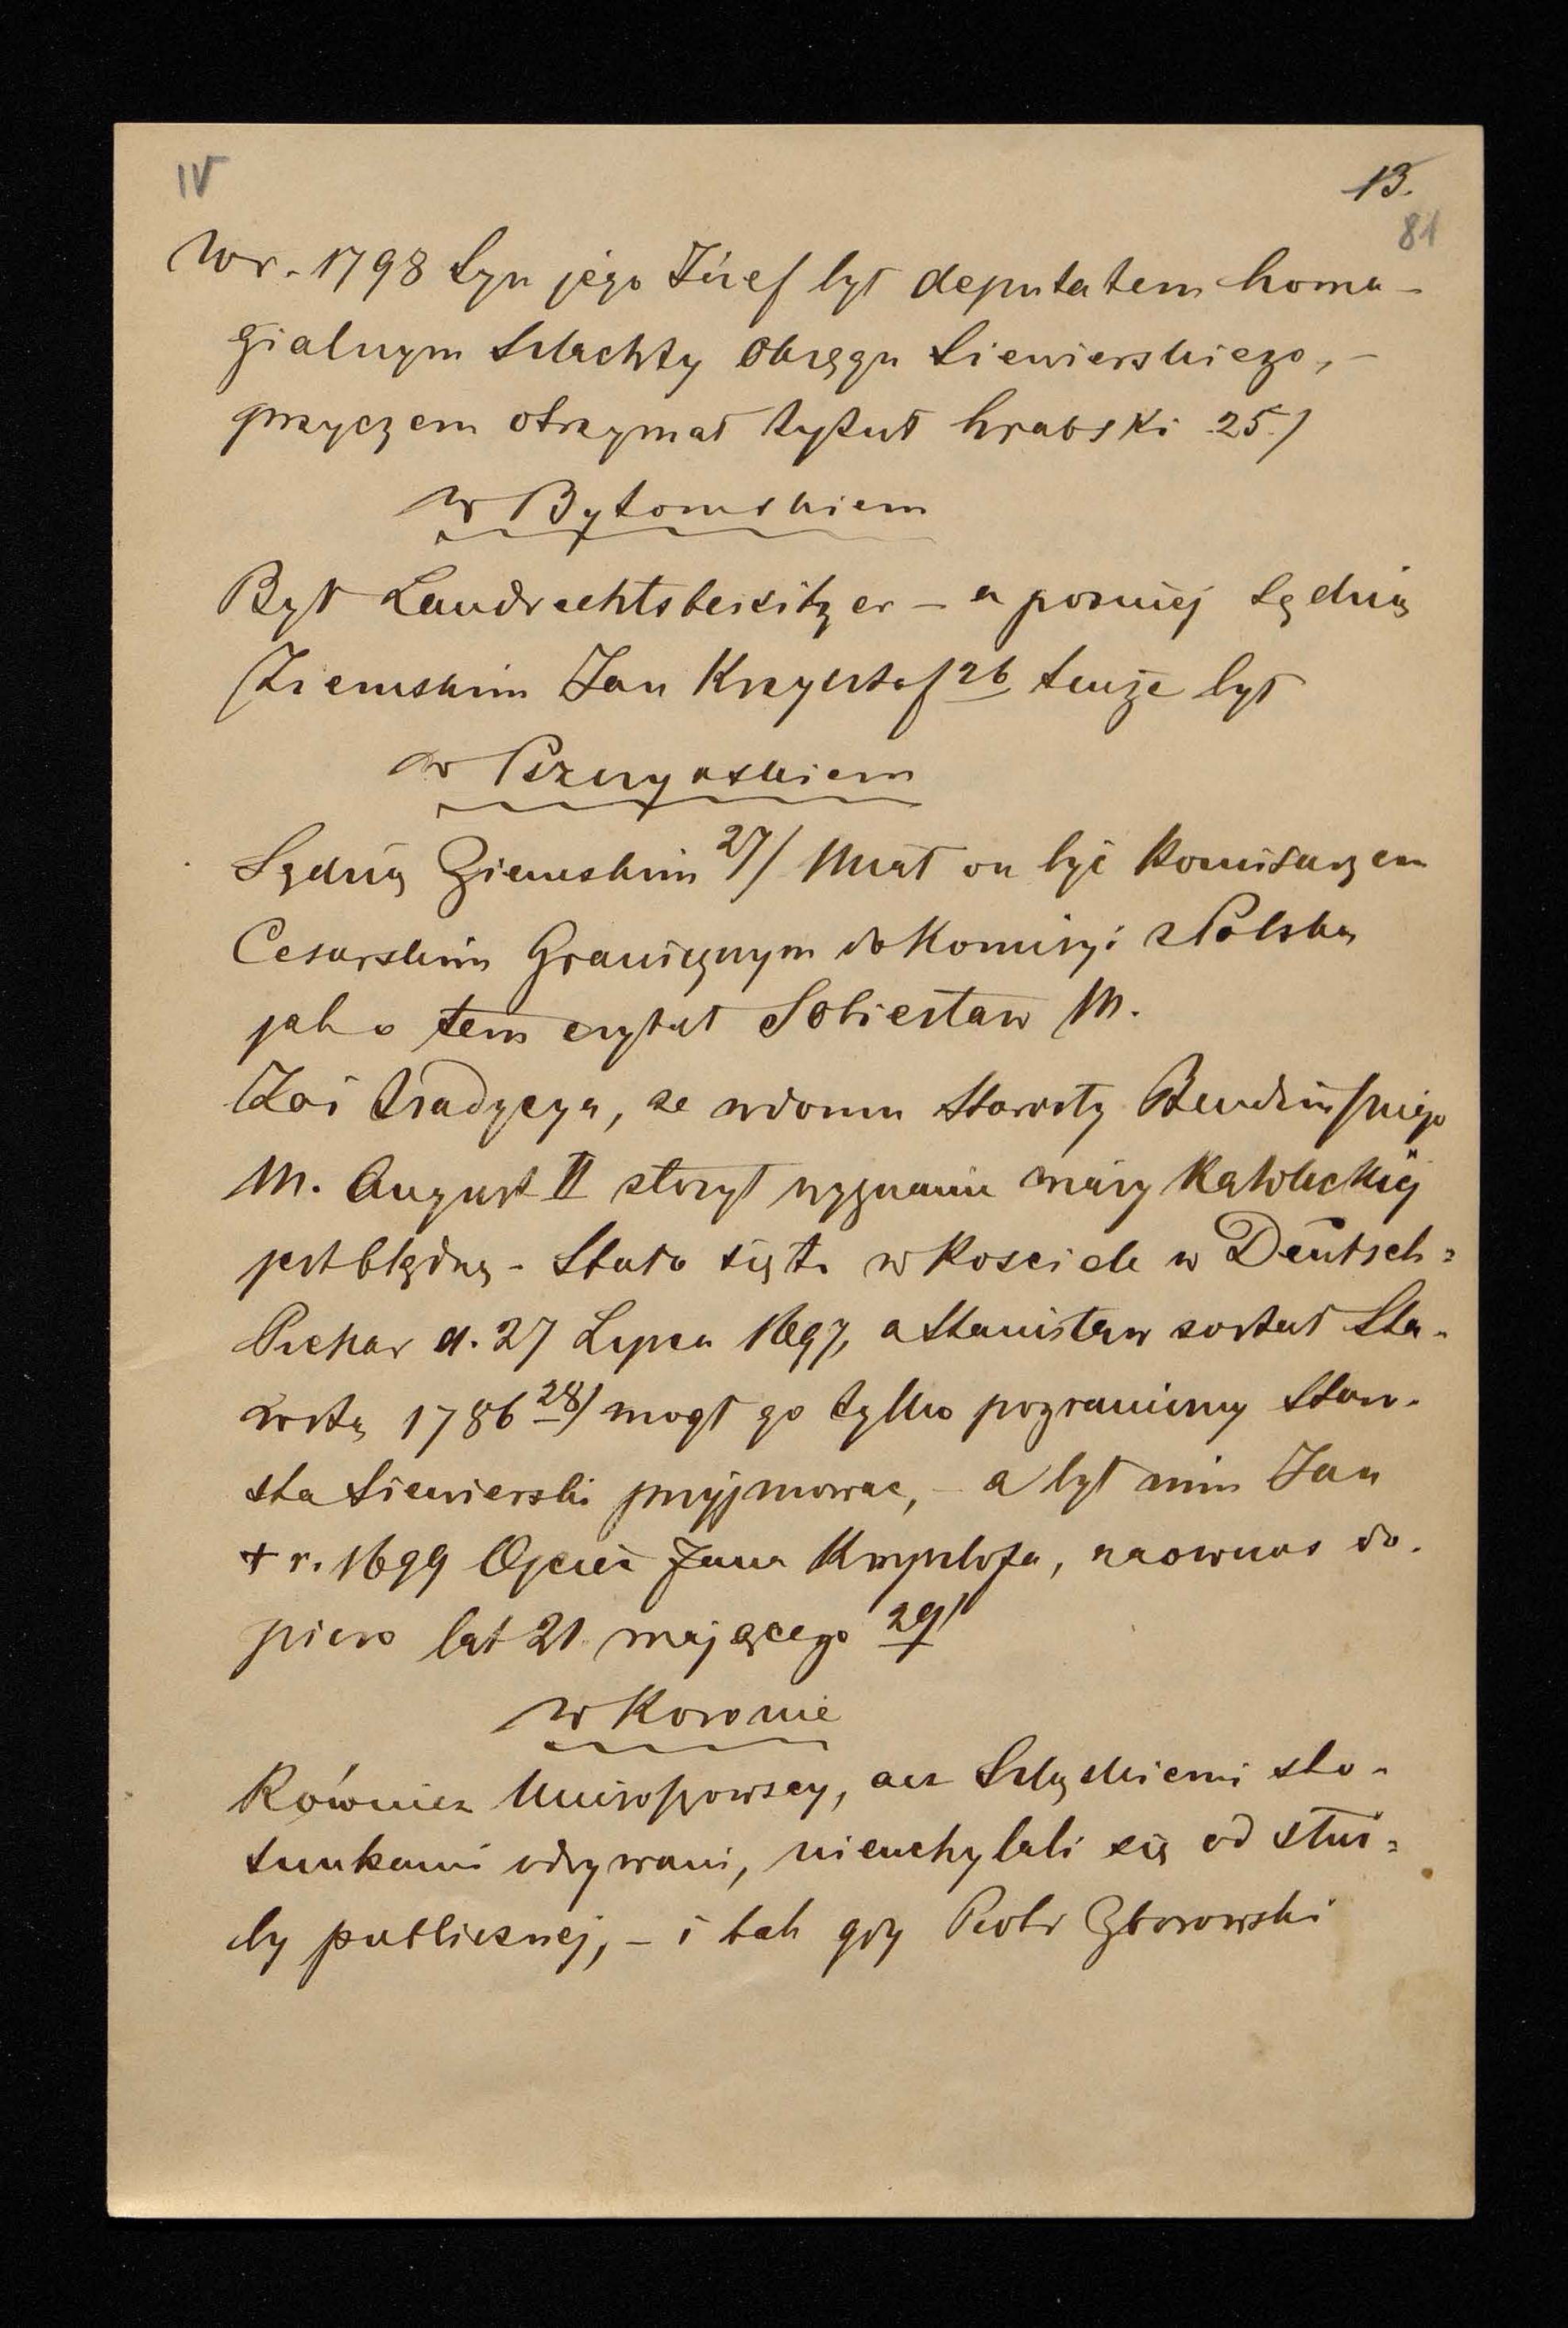 IV
13.
81
W r. 1798 Syn jego Józef był deputatem homa-
gialnym Szlachty Okręgu Siewierskiego, -
przyczem otrzymał tytuł hrabski 25/
w Bytomskiem
Był Landrechtsbeisitzer - a pozniej Sędzią
Ziemskim Jan Krzysztof 26 tenże był
w Pszczyńskiem
Sędzią Ziemskim 27/ Miał on być Komisarzem
Cesarskim Granicznym do Komisyi z Polską
jak o tem czytał Sobiesław M.
Zaś tradycya, ze w domu Starosty Bendzińskiego
M. August II złożył wyznanie wiary Katolickiej
jest błędną - Stało się to w Kosciele w Deutsch=
Piekar d. 27 Lipca 1697, a Stanisław został Sta-
rostą 1786 28/ mogł go tylko pograniczny Staro-
sta Siewierski przyjmowac, - a był nim Jan
+ r. 1699 Ojciec Jana Krzysztofa, naowczas do-
piero lat 21 mającego 29/
w Koronie
Również Mieroszowscy, acz Szląskiemi sto-
sunkami odrywani, nieuchylali się od służ=
by publicznej, - i tak gdy Piotr Zborowski